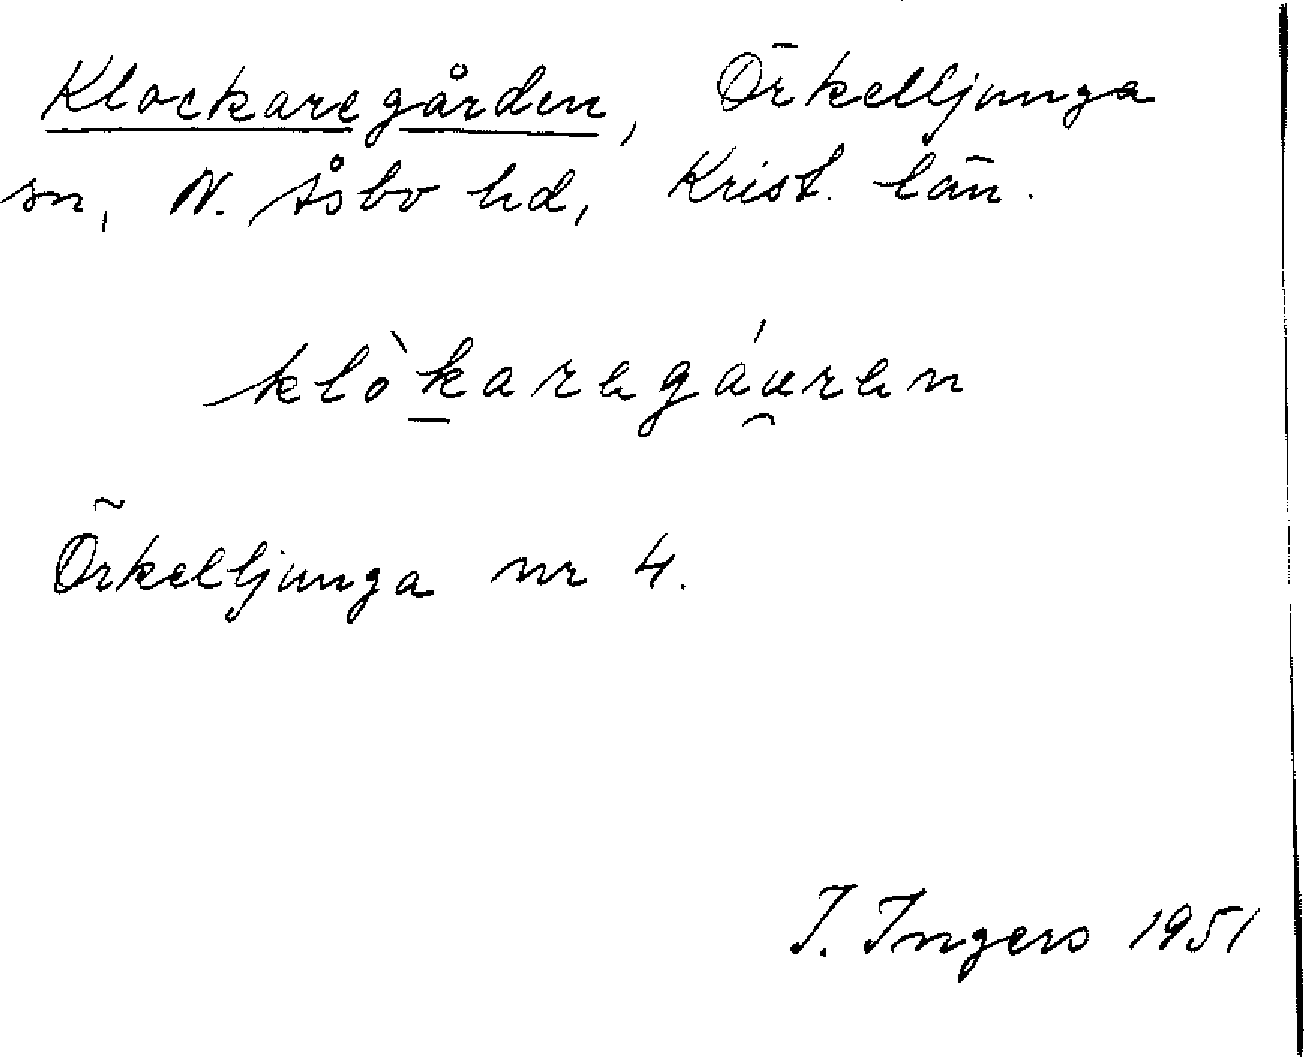 Klockaregården, Örkelljunga
sn, N. Åsbo hd, Krist. län.
klòkaregáuren
Örkelljunga nr 4.
I. Ingers 1951